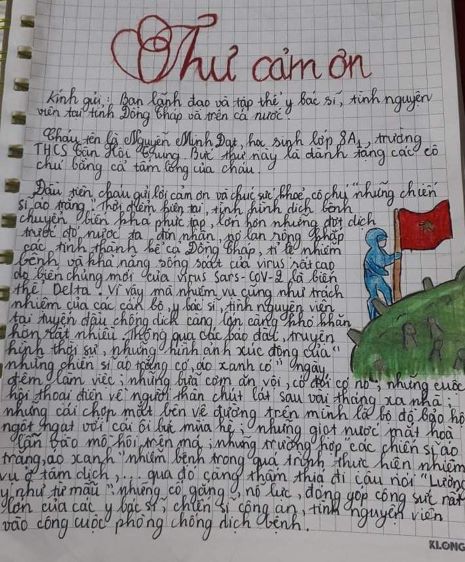 Thư cảm ơn
Kính gửi: Ban lãnh đạo và tập thể y bác sĩ, tình nguyện
viên tại tỉnh Đồng Tháp và trên cả nước
Cháu tên là Nguyễn Minh Đạt, học sinh lớp 8A1, trường
THCS Tân Hội Trung. Bức thư này là dành tặng các cô
chú bằng cả tấm lòng của cháu.
Đầu tiên cháu gửi lời cảm ơn và chúc sức khoẻ, cô chú "những chiến
sĩ áo trắng". Thời điểm hiện tại, tình hình dịch bệnh
chuyển biến khá phức tạp, lớn hơn những đợt dịch
trước đó, nước ta đón nhận, nó lan rộng khắp
các tỉnh thành kể cả Đồng Tháp, tỉ lệ nhiễm
bệnh và khả năng sống soát của virus rất cao
do biến chủng mới của virus Sars-CoV-2 là biến
thể Delta. Vì vậy mà nhiệm vụ cũng như trách
nhiệm của các cán bộ, y bác sĩ, tình nguyện viên
tại tuyến đầu chống dịch càng lớn càng khó khăn
hơn rất nhiều. Thông qua các báo đài, truyền
hình thời sự, những hình ảnh xúc động của "
những chiến sĩ áo trắng có, áo xanh có" ngày
đêm làm việc; những bữa cơm ăn vội, có đói có no; những cuộc
hội thoại điện về người thân chút lát sau vài tháng xa nhà;
những cái chợp mắt bên vệ đường trên mình là bộ đồ bảo hộ
ngột ngạt với cái oi bức mùa hè; những giọt nước mắt hoà
lẫn vào mồ hôi trên má; những trường hợp "các chiến sĩ áo
trắng, áo xanh" nhiễm bệnh trong quá trình thực hiện nhiệm
vụ ở tâm dịch,... qua đó càng thấm thía đi câu nói "Lương
y như từ mẫu" những cố gắng, nỗ lực, đóng góp công sức rất
lớn của các y bác sĩ, chiến sĩ công an, tình nguyện viên
vào công cuộc phòng chống dịch bệnh.
KLONG